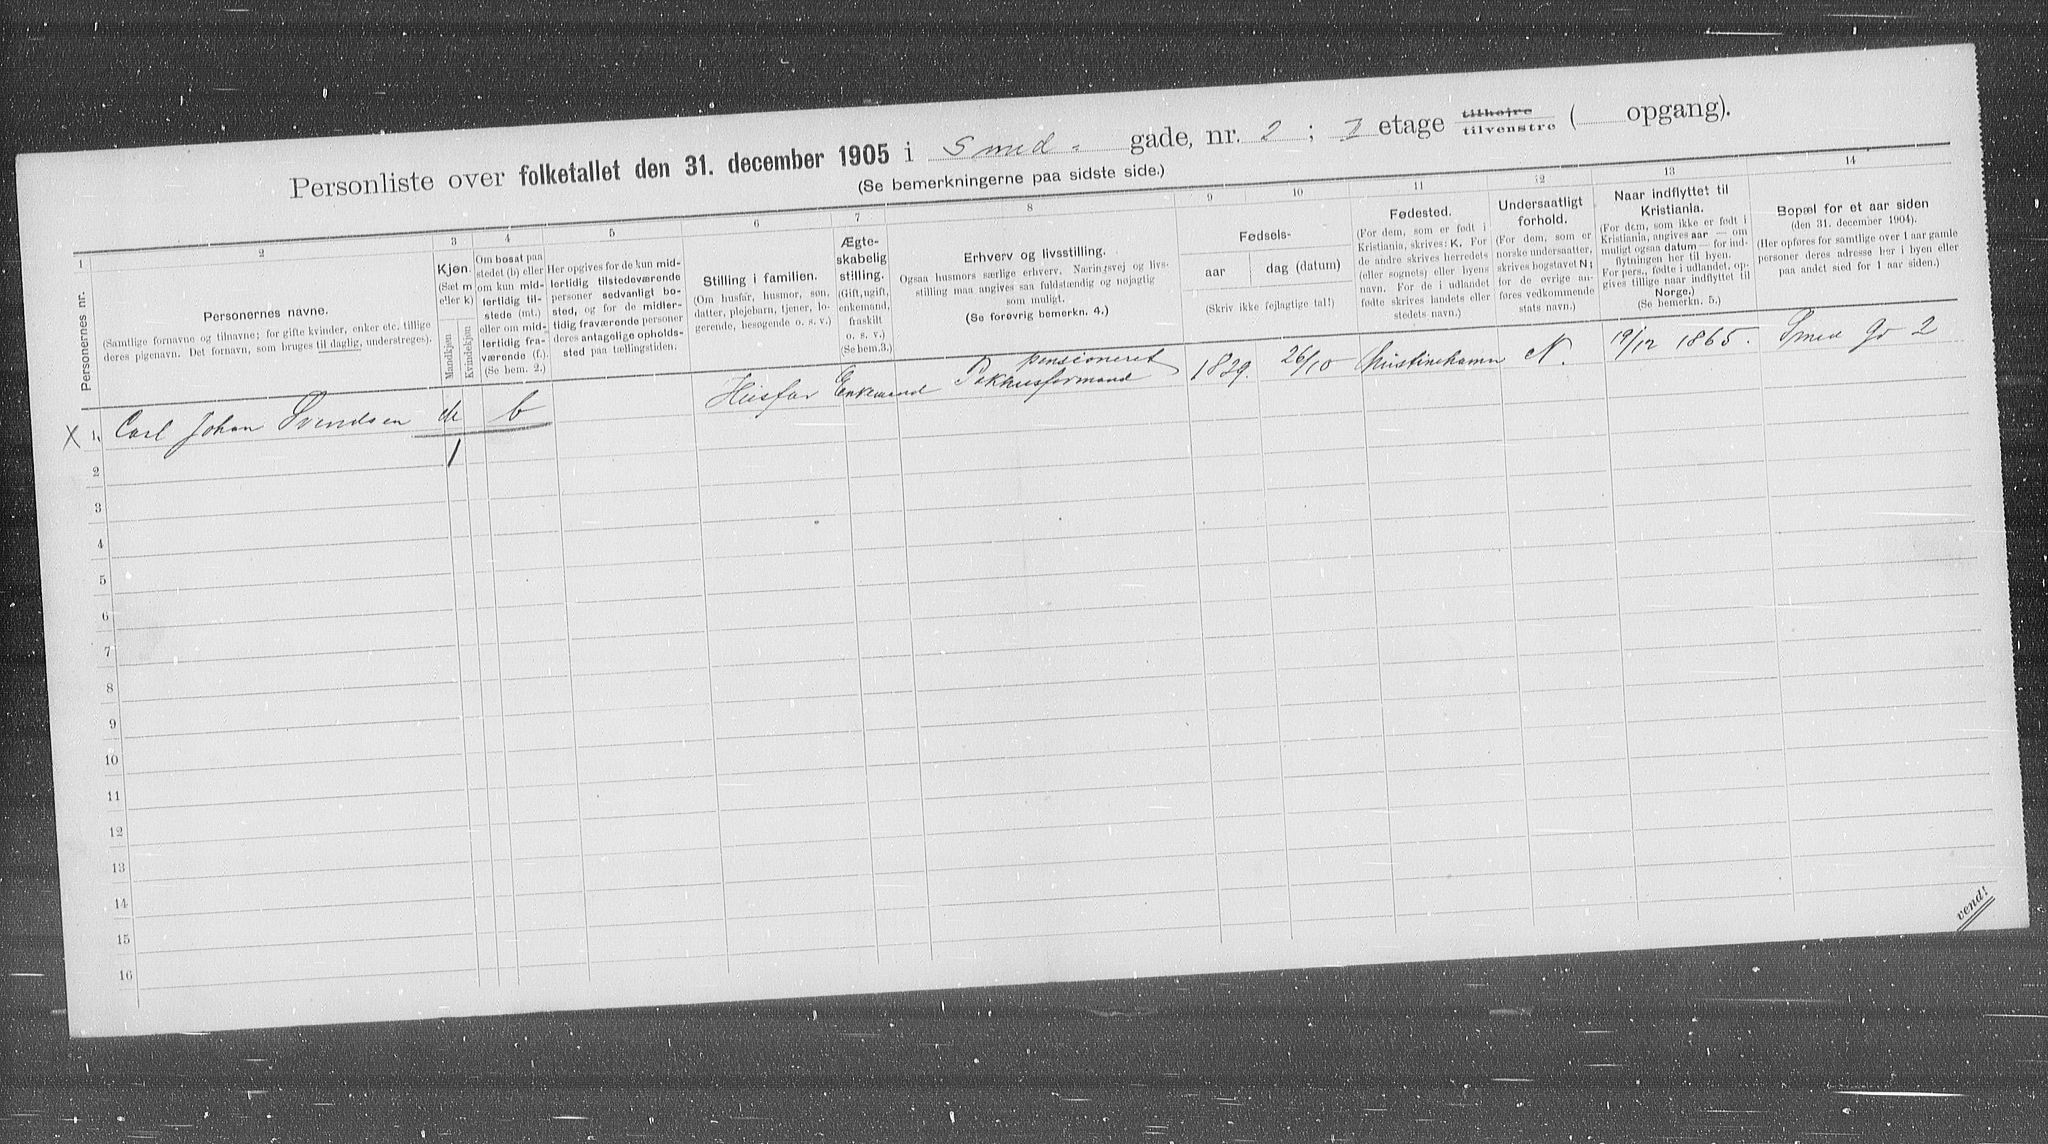 Personliste over folketallet den 31. december 1905 i Smed- gade, nr. 2 ; etage tilhøjre tilvenstre ( opgang).
(Se bemerkningerne paa sidste side.)
1 2 3 4 5 6 7 8 9 10 11 12 13 14
Personernes nr.
Personernes navne.
(Samtlige fornavne og tilnavne; for gifte kvinder, enker etc. tillige
deres pigenavn. Det fornavn, som bruges til daglig, understreges).
Kjøn.
(Sæt m
eller k)
Mandkjøn
Kvindekjøn
Om bosat paa
stedet (b) eller
om kun mid-
lertidig til-
stede (mt.)
eller om mid-
lertidig fra-
værende (f.)
(Se bem. 2.)
Her opgives for de kun mid-
lertidig tilstedeværende
personer sedvanligt bo-
sted, og for de midler-
tidig fraværende personer
deres antagelige opholds-
sted paa tællingstiden.
Stilling i familien.
(Om husfar, husmor, søn,
datter, plejebarn, tjener, lo-
gerende, besøgende o. s. v.)
Ægte-
skabelig
stilling.
(Gift, ugift,
enkemand,
fraskilt
o. s. v.)
(Se bem. 3.)
Erhverv og livsstilling.
Ogsaa husmors særlige erhverv. Næringsvej og livs-
stilling maa angives saa fuldstændig og nøjagtig
som muligt.
(Se forøvrig bemerkn. 4.)
Fødsels-
aar
dag (datum)
(Skriv ikke fejlagtige tal!)
Fødested.
(For dem, som er født i
Kristiania, skrives: K. For
de andre skrives herredets
(eller sognets) eller byens
navn. For de i udlandet
fødte skrives landets eller
stedets navn.)
Undersaatligt
forhold.
(For dem, som er
norske undersaatter,
skrives bogstavet N;
for de øvrige an-
føres vedkommende
stats navn.)
Naar indflyttet til
Kristiania.
(For dem, som ikke er født i
Kristiania, angives aar — om
muligt ogsaa datum — for ind-
flytningen her til byen.
For pers., fødte i udlandet, op-
gives tillige naar indflyttet til
Norge.)
(Se bemerkn. 5.)
Bopæl for et aar siden
(den 31. december 1904).
(Her opføres for samtlige over 1 aar gamle
personer deres adresse her i byen eller
paa andet sted for 1 aar siden.)
X 1. Carl Johan Svendsen m b Husfar Enkemand pensioneret Pakhusformand 1829. 26/10 Christinehamn N. 19/12 1865. Smed gd 2
1
2
3
4
5
6
7
8
9
10
11
12
13
14
15
16
vend!